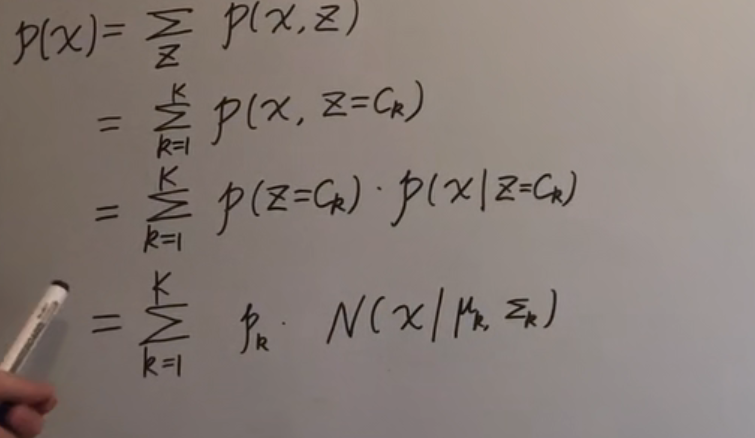 p(x) = ∑_Z p(x, z)
= ∑_{k=1}^{K} p(x, z=C_k)
= ∑_{k=1}^{K} p(z=C_k) · p(x|z=C_k)
= ∑_{k=1}^{K} p_k · N(x|μ_k, Σ_k)